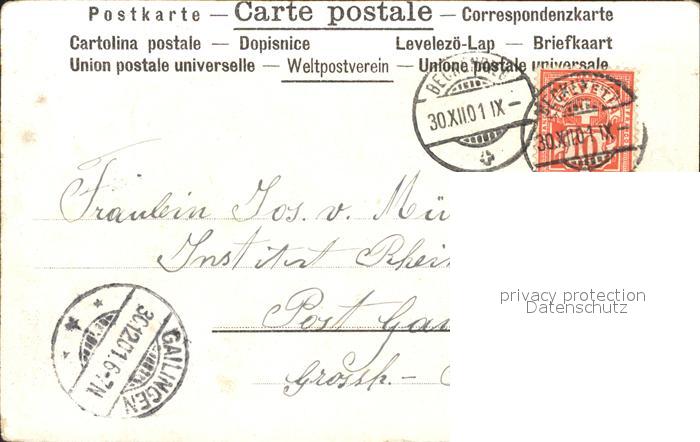 Postkarte — Carte postale — Correspondenzkarte
Cartolina postale — Dopisnice Levelező-Lap — Briefkaart
Union postale universelle — Weltpostverein — Unione postale universale
30.XII.01 IX –
HELVETIA
30.XII.01 IX –
10
Fräulein Jos. v. Mü
Institut Rhein
Post Gai
Grossh. –
GAILINGEN
30.12.01.6-7N
privacy protection
Datenschutz